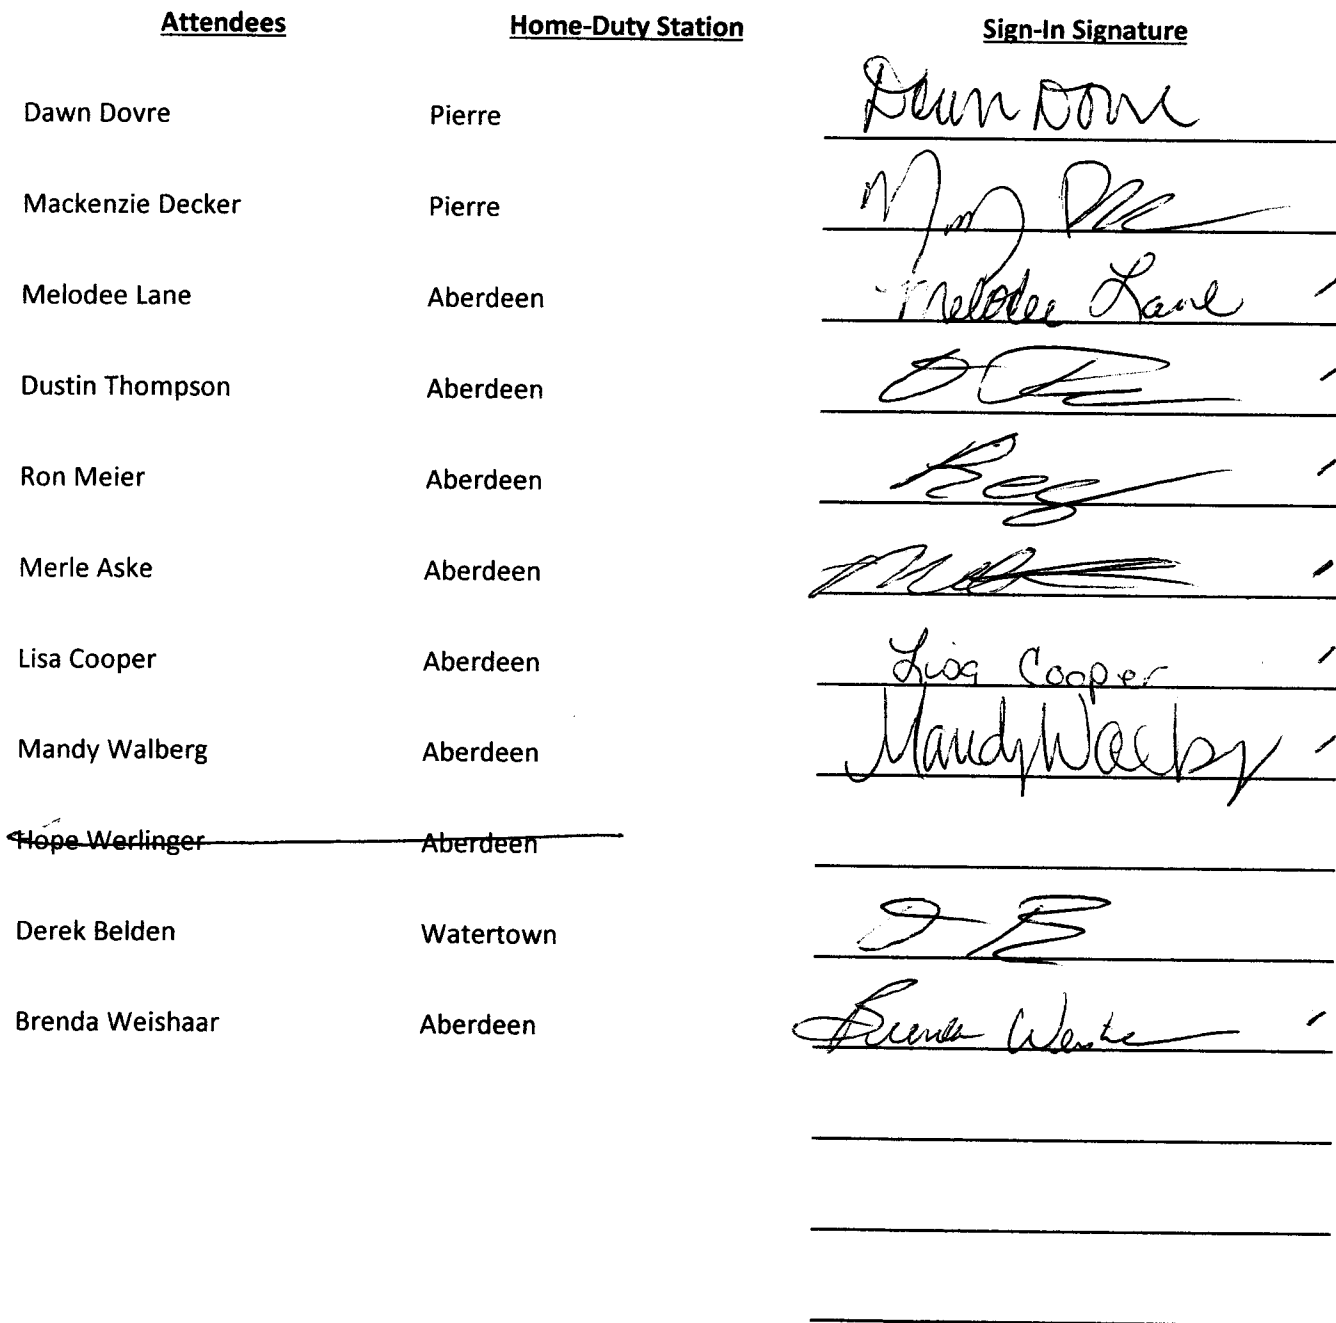 Attendees Home-Duty Station Sign-In Signature
Dawn Dovre Pierre Dawn Dovre
Mackenzie Decker Pierre
Melodee Lane Aberdeen Melodee Lane
Dustin Thompson Aberdeen
Ron Meier Aberdeen
Merle Aske Aberdeen
Lisa Cooper Aberdeen Lisa Cooper
Mandy Walberg Aberdeen Mandy Walberg
Hope Werlinger Aberdeen
Derek Belden Watertown
Brenda Weishaar Aberdeen Brenda